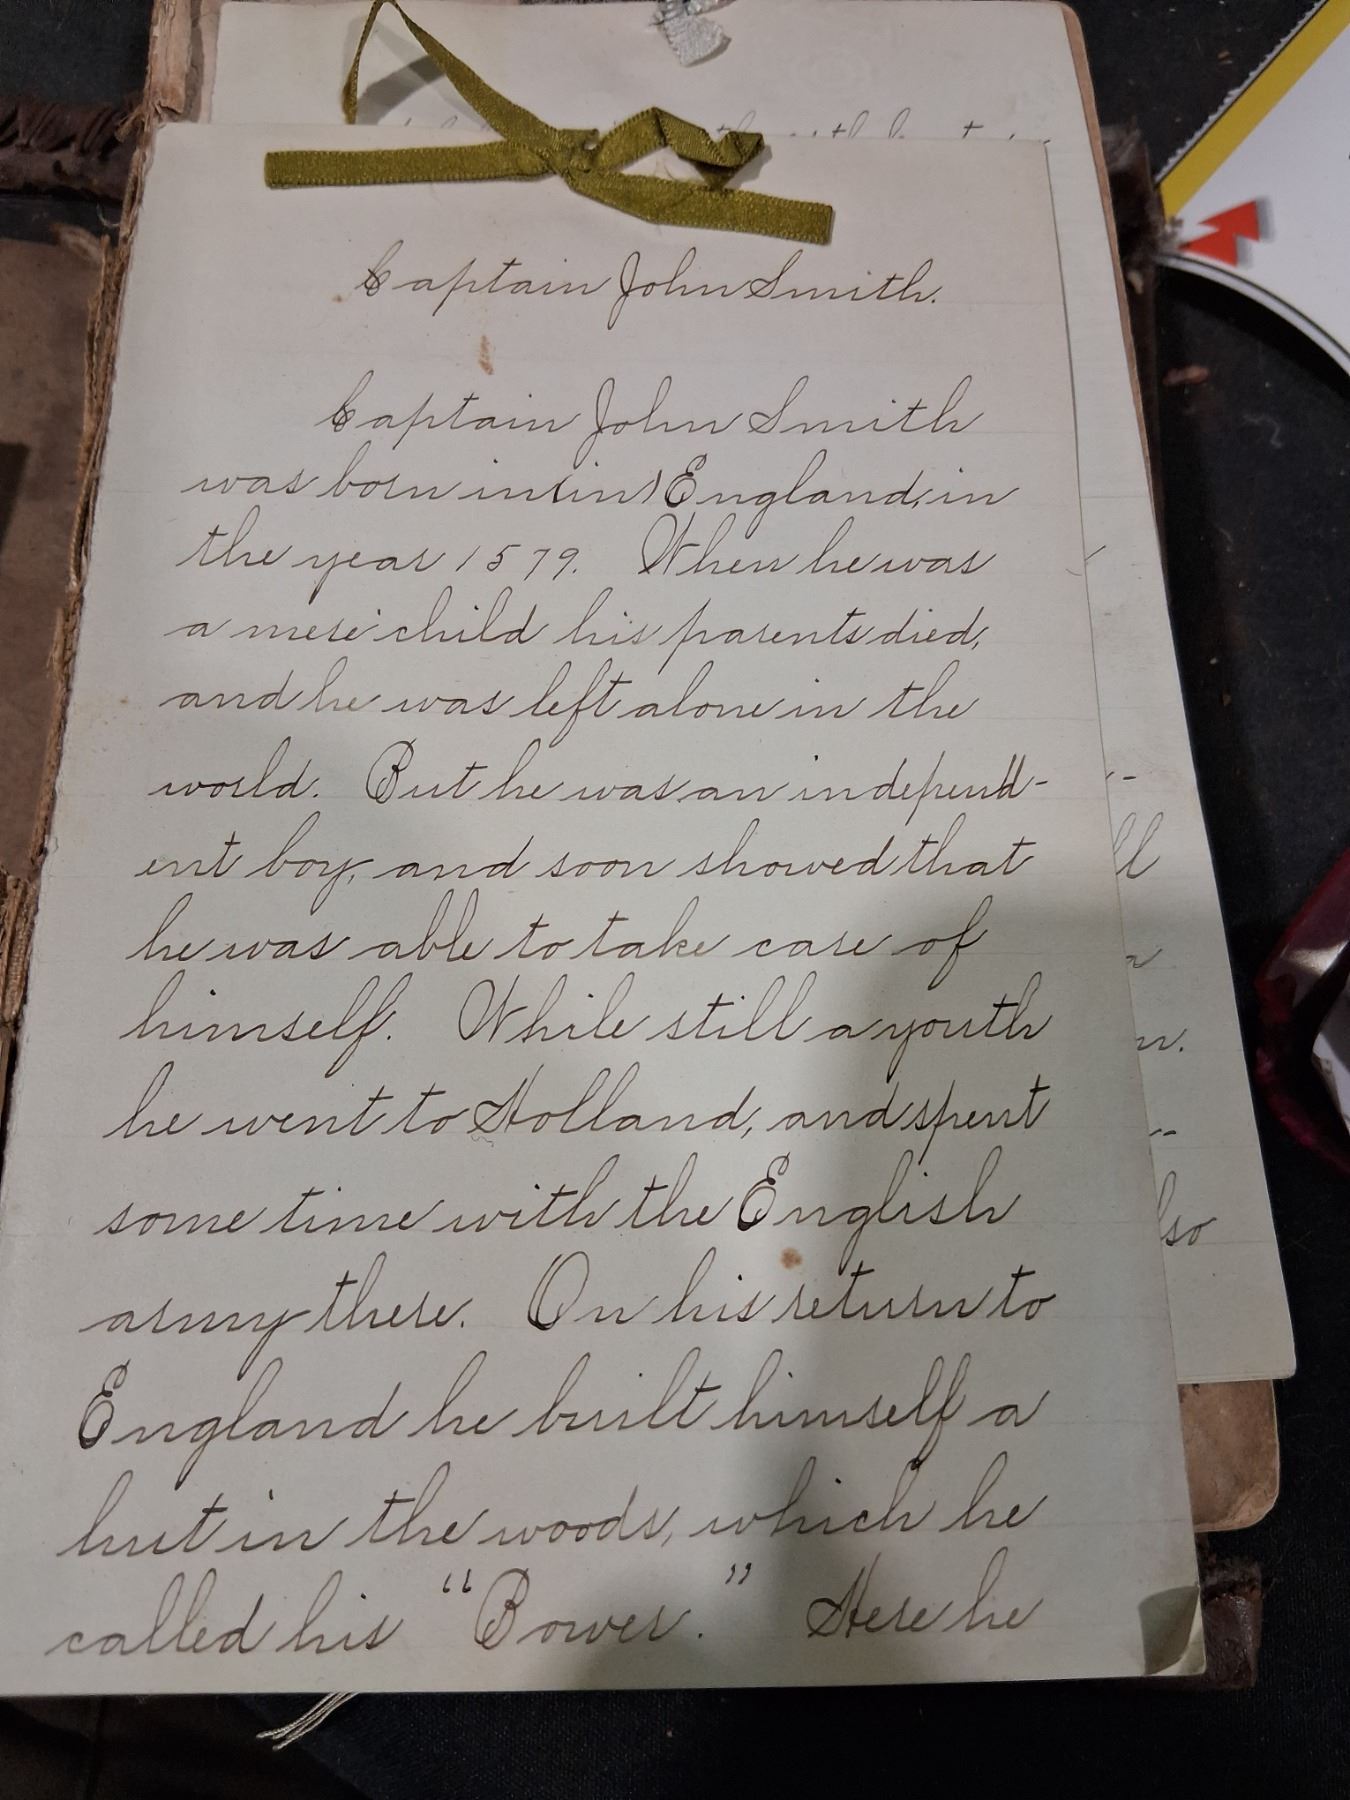 Captain John Smith.
Captain John Smith
was born in (in) England, in
the year 1579. When he was
a mere child his parents died,
and he was left alone in the
world. But he was an independ-
ent boy, and soon showed that
he was able to take care of
himself. While still a youth
he went to Holland, and spent
some time with the English
army there. On his return to
England he built himself a
hut in the woods, which he
called his "Bower." Here he
ll
a
n.
lso